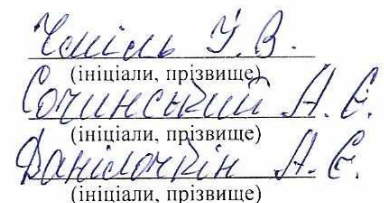 Чміль У. В.
(ініціали, прізвище)
Сочинський А. Є.
(ініціали, прізвище)
Данілочкін А. Є.
(ініціали, прізвище)